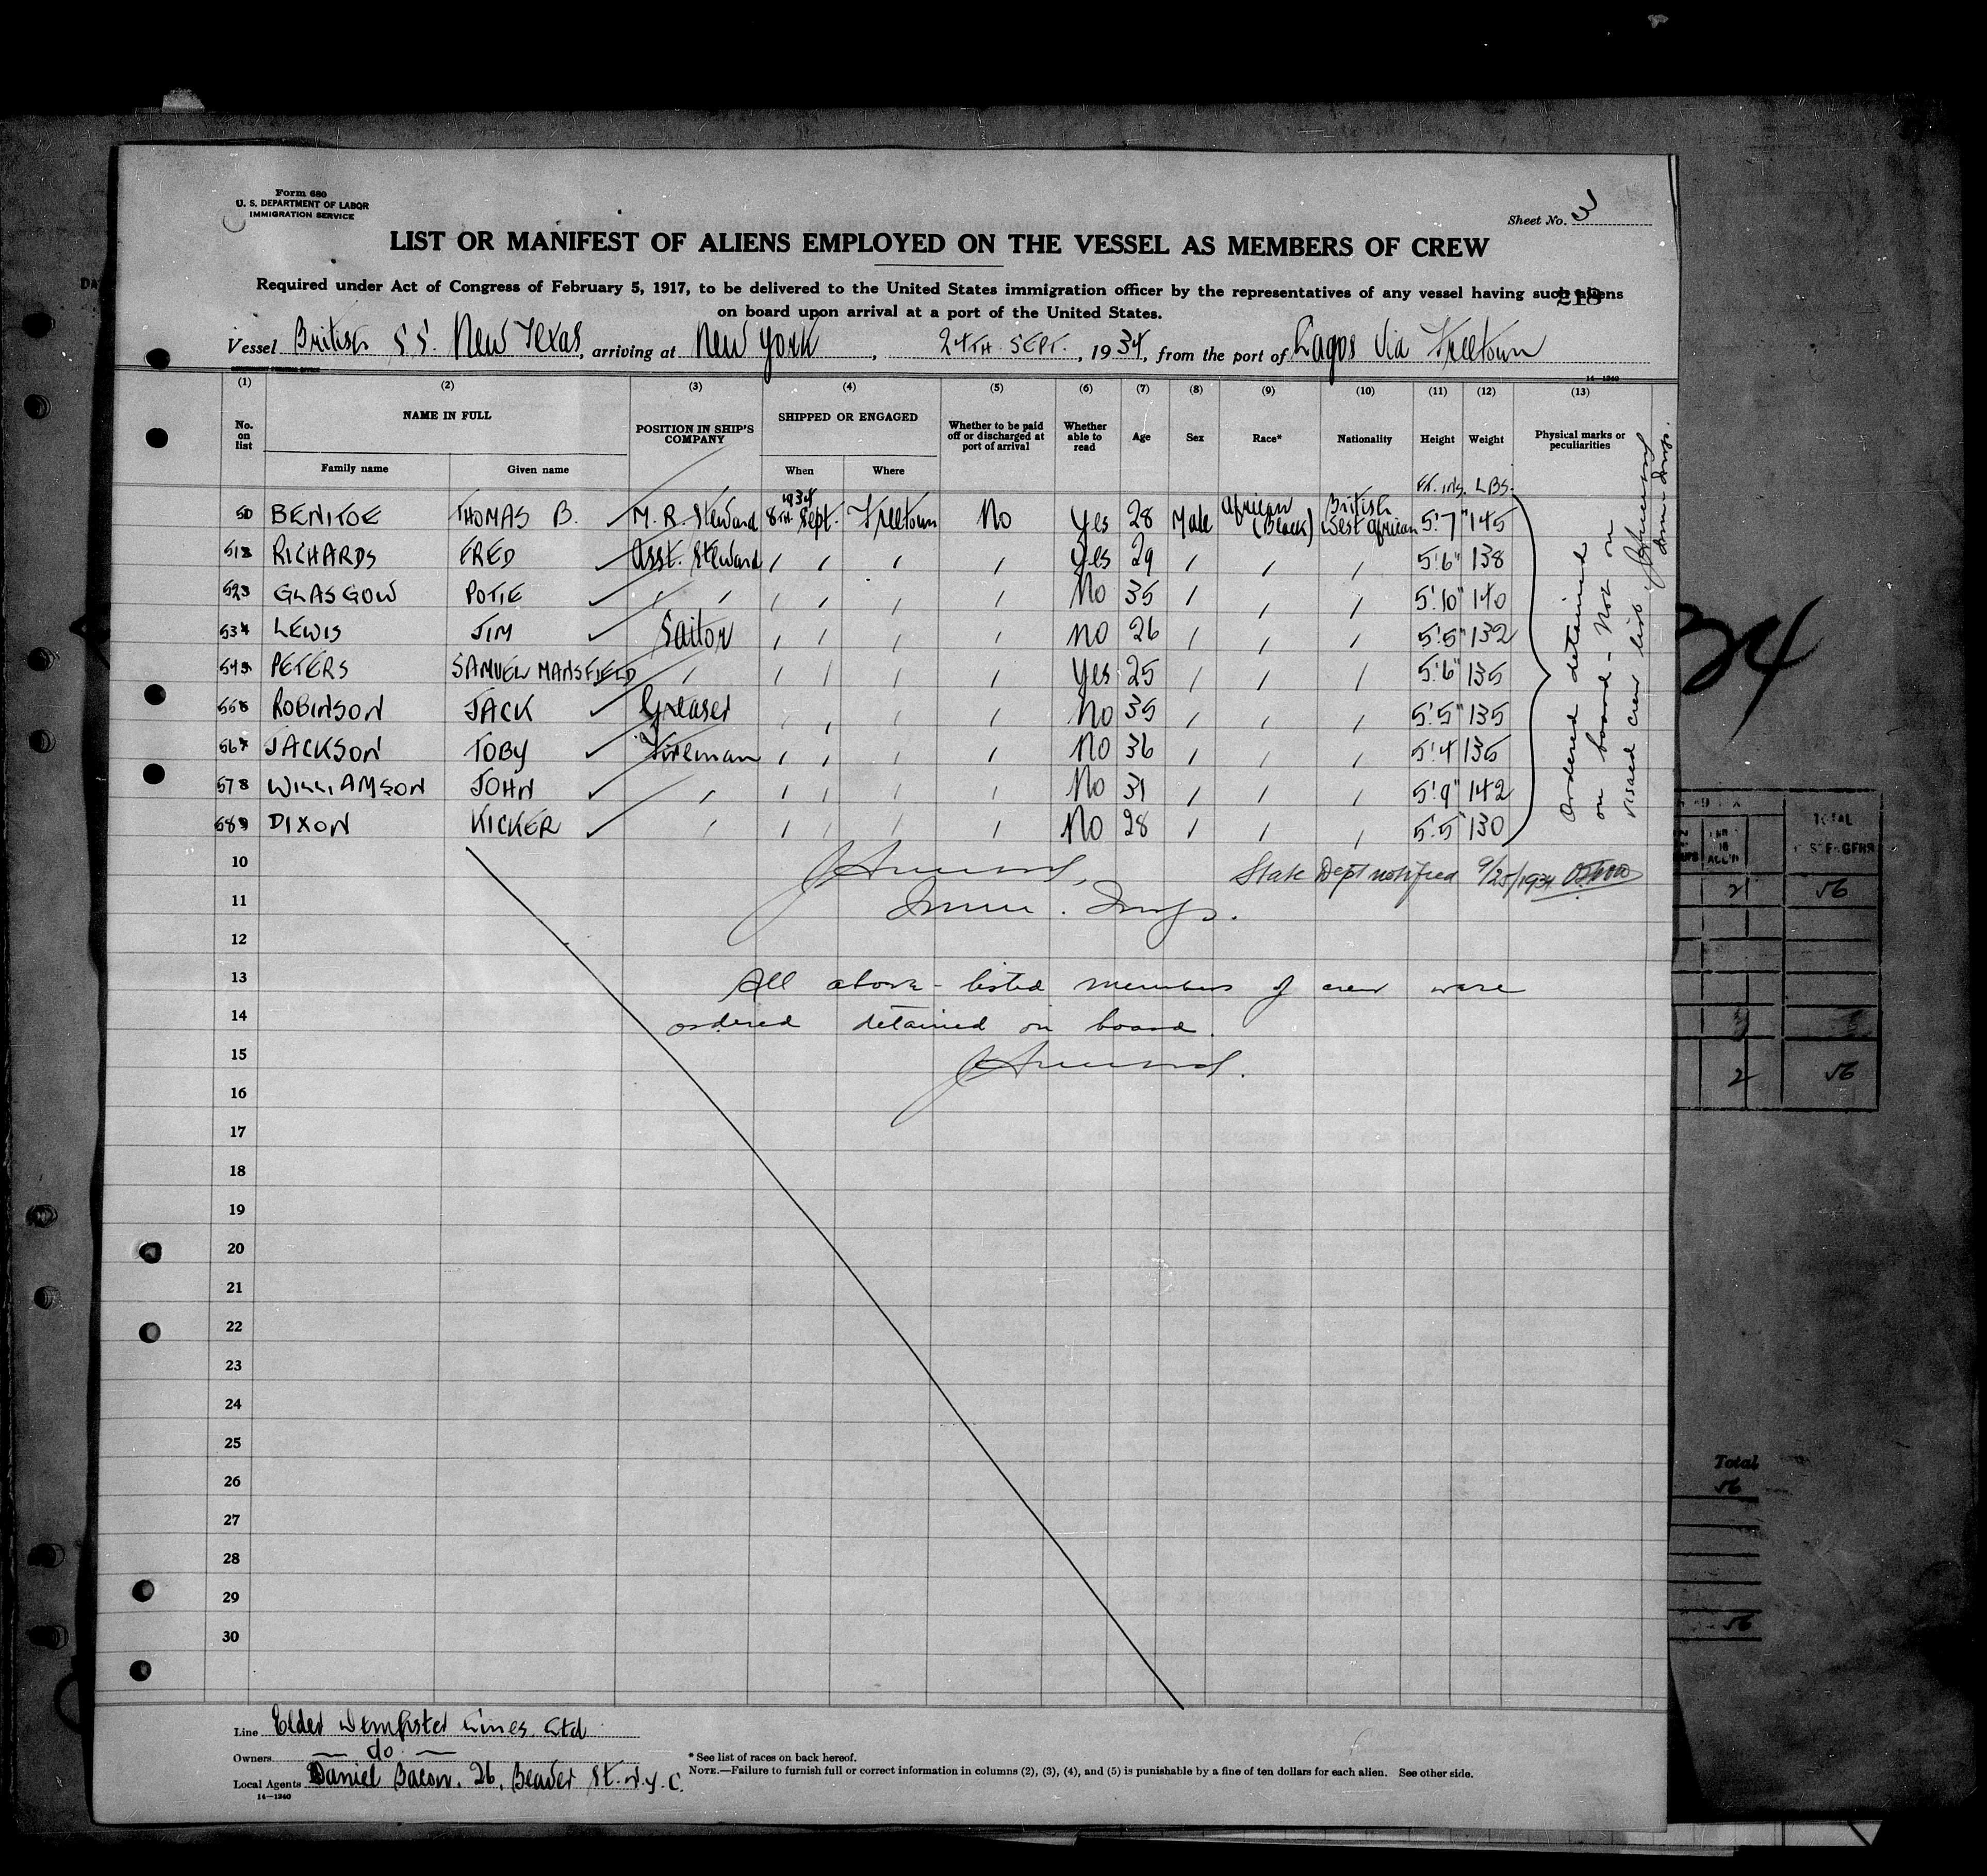 Form 680
U. S. DEPARTMENT OF LABOR
IMMIGRATION SERVICE
Sheet No. 3
LIST OR MANIFEST OF ALIENS EMPLOYED ON THE VESSEL AS MEMBERS OF CREW
Required under Act of Congress of February 5, 1917, to be delivered to the United States immigration officer by the representatives of any vessel having such aliens
on board upon arrival at a port of the United States.
218
Vessel British SS. New Texas, arriving at New York, 24TH SEPT., 1934, from the port of Lagos Via Freetown
14—1240
(1) (2) (3) (4) (5) (6) (7) (8) (9) (10) (11) (12) (13)
No. on list NAME IN FULL POSITION IN SHIP'S COMPANY SHIPPED OR ENGAGED Whether to be paid off or discharged at port of arrival Whether able to read Age Sex Race* Nationality Height Weight Physical marks or peculiarities
Family name Given name When Where
Ft. ins. LBS.
50 BENITOE THOMAS B. ✓ M. R. Steward 1934 8TH Sept. Freetown No Yes 28 Male African (Black) British West African 5'.7" 145
51 RICHARDS FRED ✓ Asst. Steward / / / / Yes 29 / / / 5'.6" 138
52 GLASGOW POTIE ✓ / / / / / / No 35 / / / 5'.10" 140
53 LEWIS JIM ✓ Sailor / / / / No 26 / / / 5'.5" 132
54 PETERS SAMUEL MANSFIELD ✓ / / / / / Yes 25 / / / 5'.6" 135
55 ROBINSON JACK ✓ Greaser / / / / No 35 / / / 5'.5" 135
56 JACKSON TOBY ✓ Fireman / / / / No 36 / / / 5'.4 135
57 WILLIAMSON JOHN ✓ / / / / / No 31 / / / 5'.9" 142
58 DIXON KICKER ✓ / / / / / No 28 / / / 5'.5 130
Ordered detained
on board - Not on
visaed crew list
Imm. Insp.
10
State Dept notified 9/25/1934
11
Imm. Insp.
12
13 All above-listed members of crew were
14 ordered detained on board.
15
16
17
18
19
20
21
22
23
24
25
26
27
28
29
30
Line Elder Dempster Lines Ltd
Owners — do —
Local Agents Daniel Bacon. 26, Beaver St. N.Y.C.
14—1240
* See list of races on back hereof.
NOTE.—Failure to furnish full or correct information in columns (2), (3), (4), and (5) is punishable by a fine of ten dollars for each alien. See other side.
34
TOTAL
2 56
2 56
Total
56
56